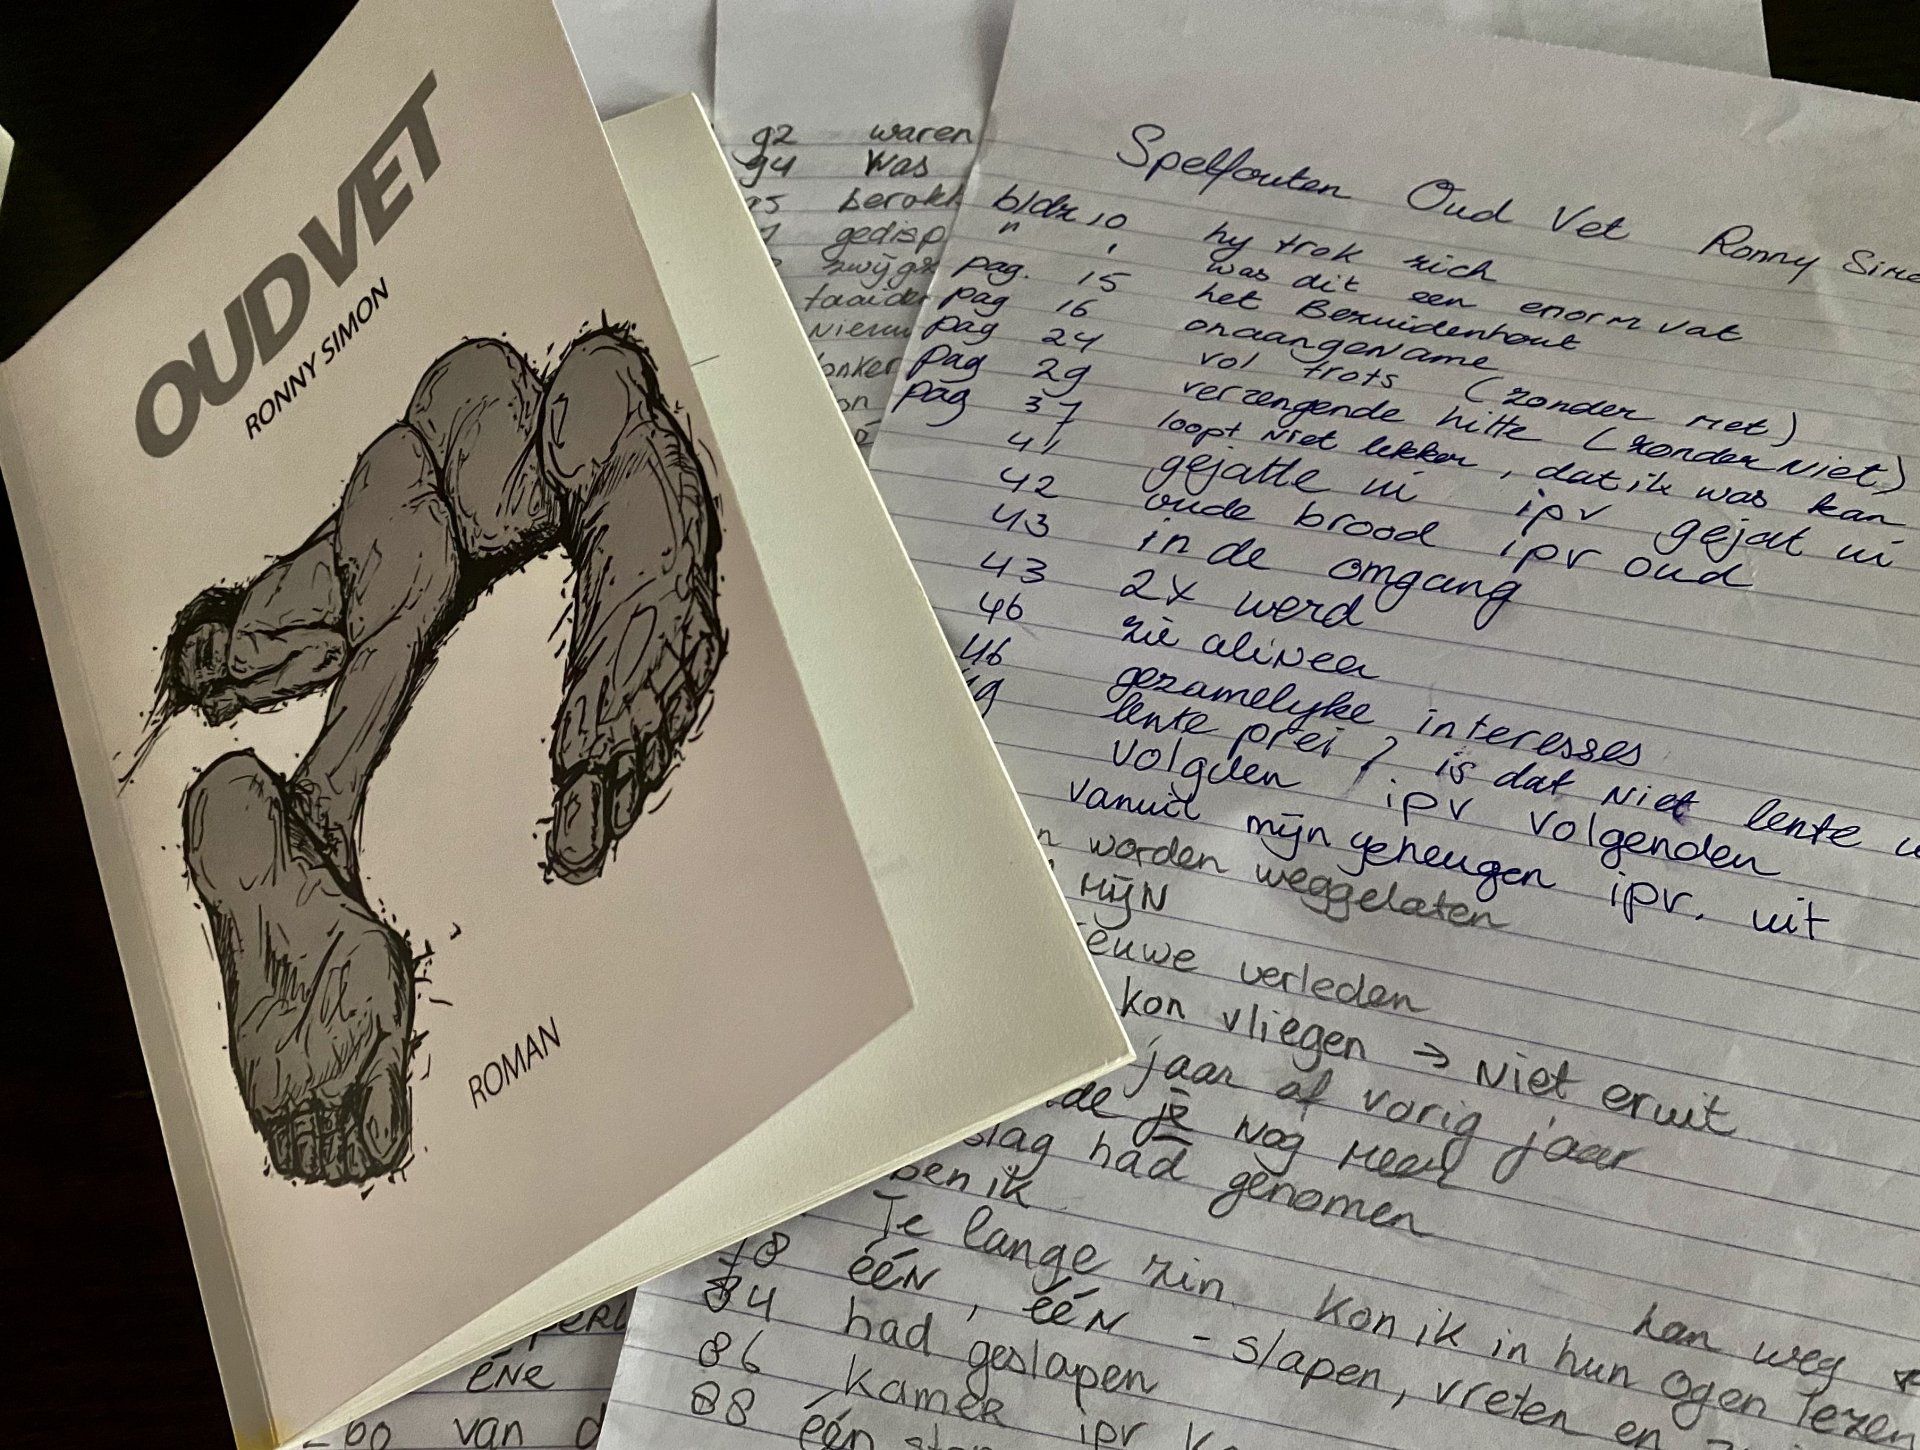 OUD VET
RONNY SIMON
ROMAN
92 waren
94 was
95
gedisp
Spelfouten Oud Vet Ronny Simo
bldz 10 hy trok zich
" , was dit een enorm vat
pag. 15 het Bezuidenhout
pag 16 onaangename
pag 24 vol trots (zonder met)
pag 29 verzengende hitte (zonder niet)
pag 37 loopt niet lekker, dat ik was kan
41 gejatte ui ipv gejat ui
42 oude brood ipv oud
43 in de omgang
43 2x werd
46 zie alinea
46 gezamelyke interesses
lente prei ? is dat niet lente u
volgden ipv volgenden
vanuit mijn geheugen ipv. uit
n worden weggelaten
MIJN
euwe verleden
kon vliegen → niet eruit
jaar of vorig jaar
de je nog meer
slag had genomen
ben ik
Te lange zin. Kon ik in hun ogen lezen
kan weg
78 één, één - slapen, vreten en
84 had geslapen
86 kamer ipv k
88 één
éne
100 van d